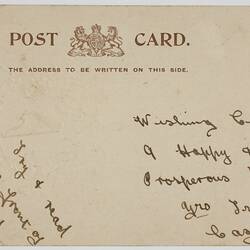 POST CARD.
THE ADDRESS TO BE WRITTEN ON THIS SIDE.
Wishing
A Happy &
Prosperous
Yrs
Try & read
front of